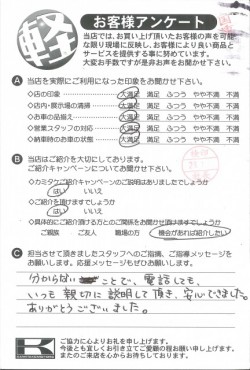 軽
お客様アンケート
当店では、お買い上げ頂いたお客様の声を可能
な限り現場に反映し、お客様により良い商品と
サービスを提供する事に努めています。
大変お手数ですが是非お声をお聞かせ下さい。
A 当店を実際にご利用になった印象をお聞かせ下さい。
◇店の印象 大満足 満足 ふつう やや不満 不満
◇店内・展示場の清掃 大満足 満足 ふつう やや不満 不満
◇お車の品揃え 大満足 満足 ふつう やや不満 不満
◇営業スタッフの対応 大満足 満足 ふつう やや不満 不満
◇納車時のお車の状態 大満足 満足 ふつう やや不満 不満
B 当店はご紹介を大切にしております。
ご紹介キャンペーンについてお聞かせ下さい。
◇カミタケご紹介キャンペーンのご説明はありましたでしょうか
はい いいえ
◇ご紹介を頂けますでしょうか
はい いいえ
◇具体的にご紹介頂ける方とのご関係をお聞かせ頂けますでしょうか
ご親族 ご友人 職場の方 機会があれば紹介したい
C 担当させて頂きましたスタッフへのご指摘、ご指導メッセージを
お願いします。応援メッセージもぜひお願いします。
分からないことで、電話しても、
いつも親切に説明して頂き、安心できました。
ありがとうございました。
K
ご協力に心よりお礼を申し上げます。
今後とも宜しくお引き立てご愛顧の程お願い申し上げます。
またのご来店を心からお待ちしております。